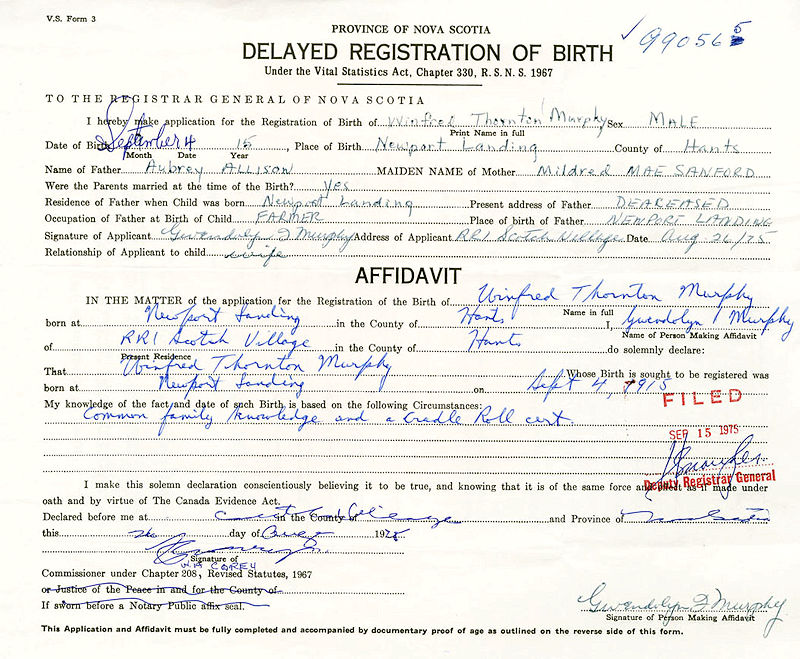 V.S. Form 3
PROVINCE OF NOVA SCOTIA
✓ 990565
DELAYED REGISTRATION OF BIRTH
Under the Vital Statistics Act, Chapter 330, R.S.N.S. 1967
TO THE REGISTRAR GENERAL OF NOVA SCOTIA
I hereby make application for the Registration of Birth of Winfred Thornton Murphy Sex MALE
Print Name in full
Date of Birth September 4 15, Place of Birth Newport Landing County of Hants
Month Date Year
Name of Father Aubrey ALLISON MAIDEN NAME of Mother Mildred MAE SANFORD
Were the Parents married at the time of the Birth? yes
Residence of Father when Child was born Newport Landing Present address of Father DEAREASED
Occupation of Father at Birth of Child FARMER Place of birth of Father NEWPORT LANDING
Signature of Applicant Gwendolyn F Murphy Address of Applicant RR1 Scotch Village Date Aug 26/75
Relationship of Applicant to child wife
AFFIDAVIT
IN THE MATTER of the application for the Registration of the Birth of Winfred Thornton Murphy
Name in full
born at Newport Landing in the County of Hants I, Gwendolyn Murphy
Name of Person Making Affidavit
of RR1 Scotch Village in the County of Hants do solemnly declare:
Present Residence
That Winfred Thornton Murphy Whose Birth is sought to be registered was
born at Newport Landing on Sept 4, 1915
My knowledge of the fact and date of such Birth is based on the following Circumstances:
FILED
Common family knowledge and a Cradle Roll cert
SEP 15 1975
Deputy Registrar General
I make this solemn declaration conscientiously believing it to be true, and knowing that it is of the same force and effect as if made under
oath and by virtue of The Canada Evidence Act.
Declared before me at in the County of and Province of
this 26 day of Aug 1975
Signature of
W.A COREY
Commissioner under Chapter 208, Revised Statutes, 1967
or Justice of the Peace in and for the County of
If sworn before a Notary Public affix seal.
Gwendolyn F Murphy
Signature of Person Making Affidavit
This Application and Affidavit must be fully completed and accompanied by documentary proof of age as outlined on the reverse side of this form.